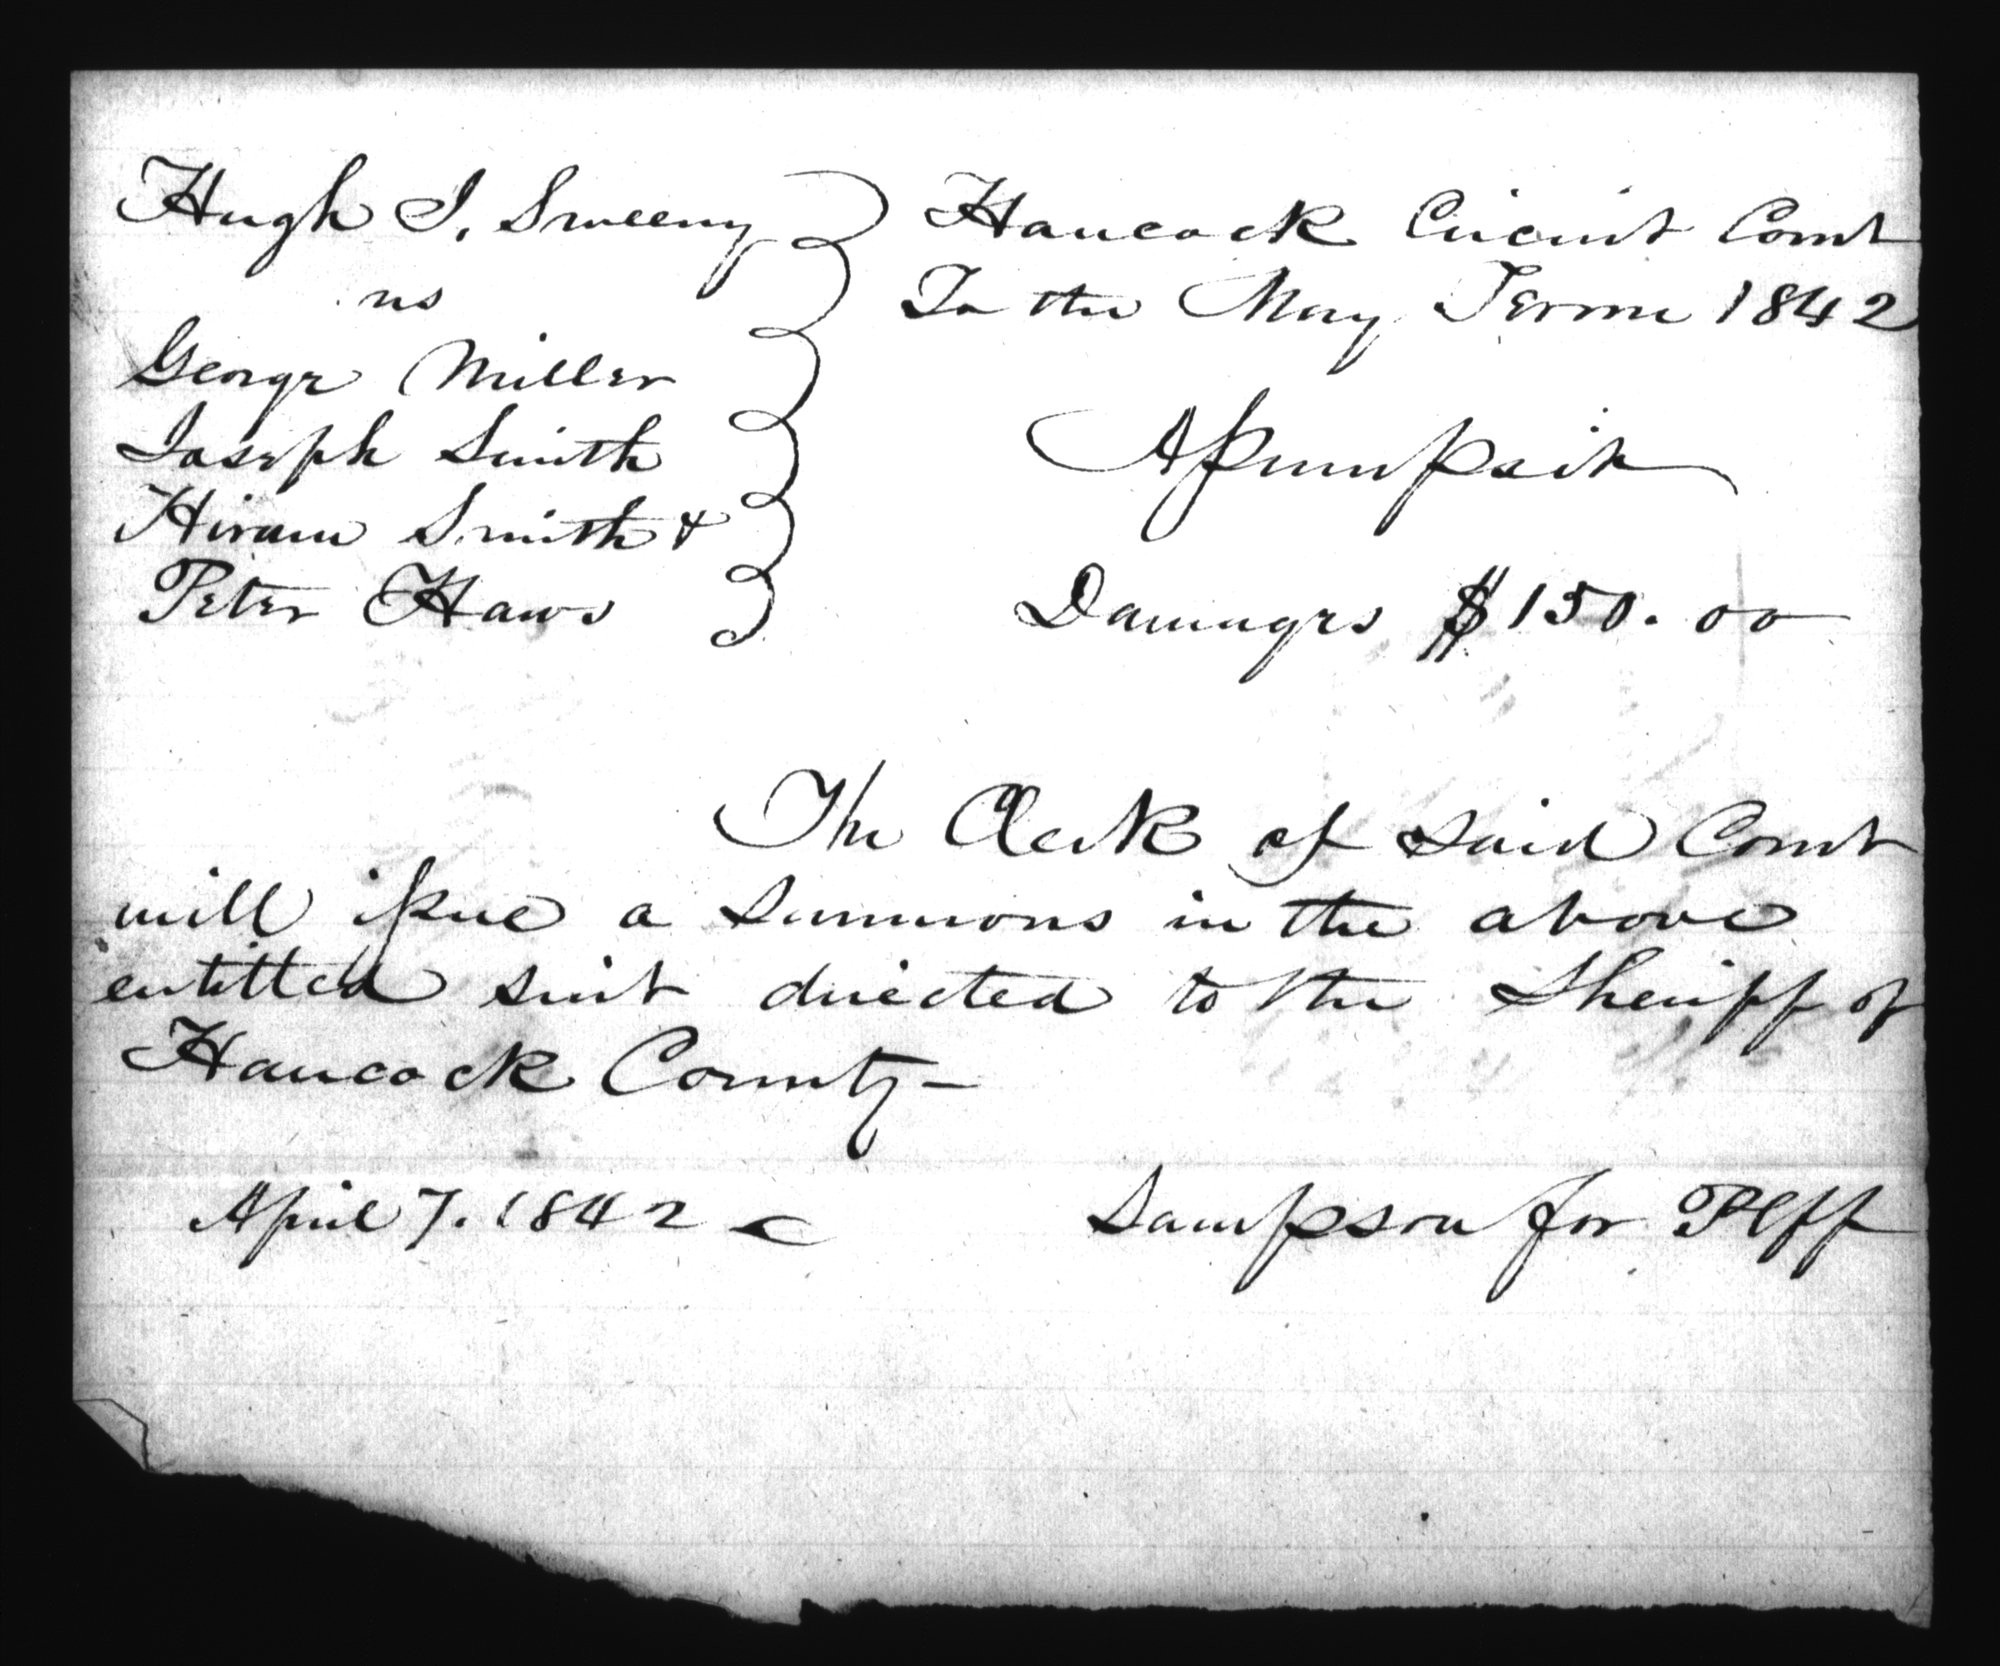 Hugh I. Sweeny } Hancock Circuit Court
vs } To the May Term 1842
George Miller
Joseph Smith } Assumpsit
Hiram Smith &
Peter Haws } Damages $150.00
The Clerk of said Court
will issue a summons in the above
entitled suit directed to the Sheriff of
Hancock County–
April 7. 1842 Sampson for Plff